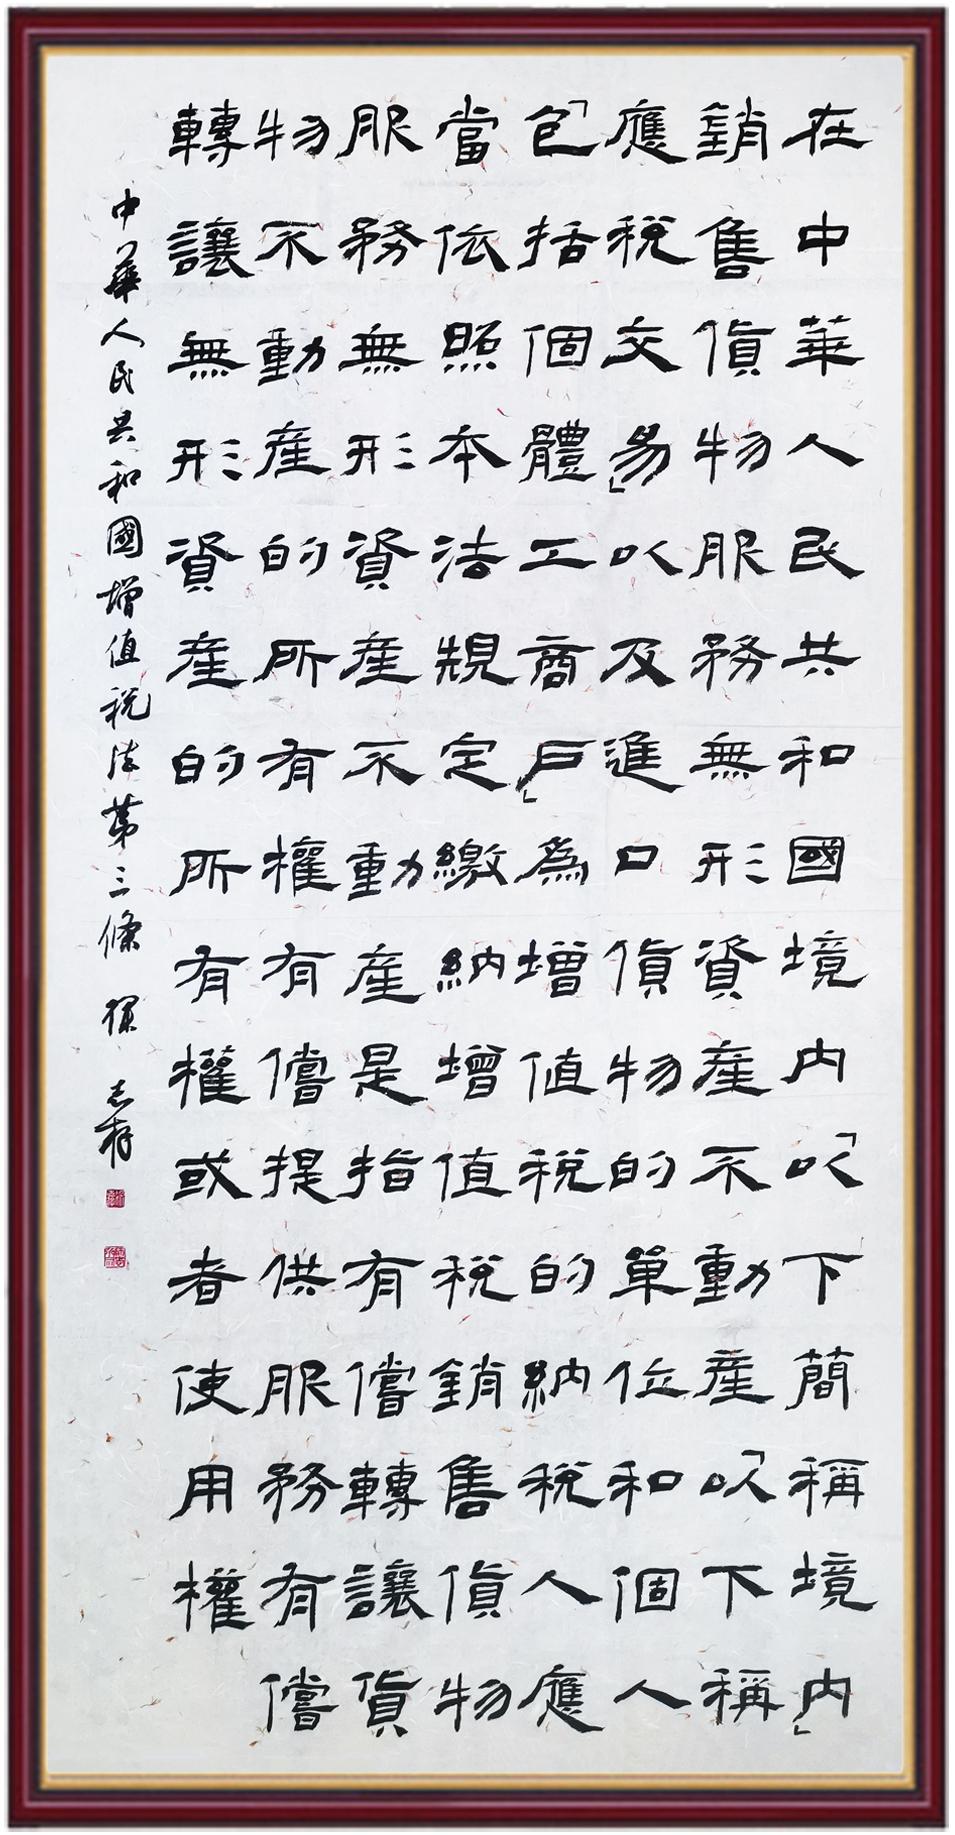 在中華人民共和國境内「以下簡稱境内」
銷售貨物服務無形資產不動產「以下稱
應稅交易」以及進口貨物的單位和個人
「包括個體工商户」為增值稅的納稅人應
當依照本法規定繳納增值稅銷售貨物
服務無形資產不動產是指有償轉讓貨
物不動產的所有權有償提供服務有償
轉讓無形資產的所有權或者使用權
中華人民共和國增值稅法第三條 志祥